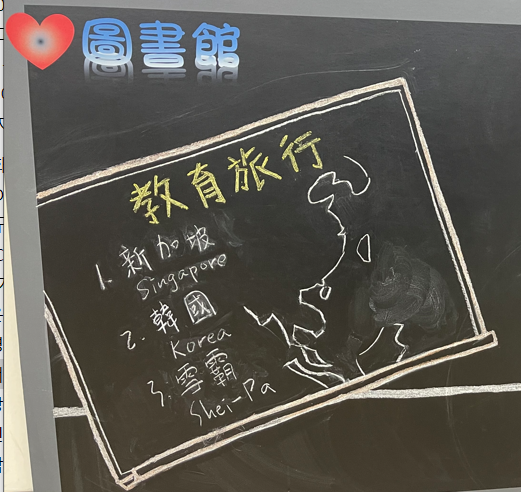 圖書館
教育旅行
1. 新加坡
Singapore
2. 韓國
Korea
3. 雪霸
Shei-Pa